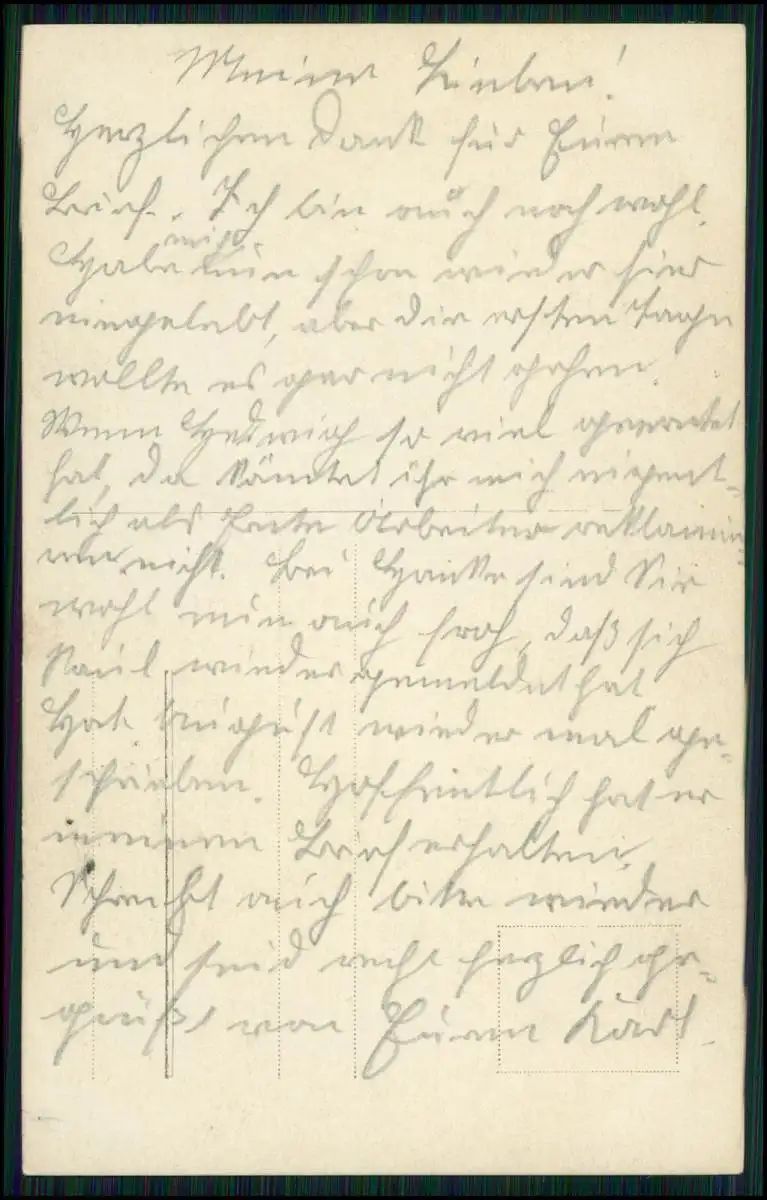 Meine Lieben!
Herzlichen Dank für Euren
Brief. Ich bin auch noch wohl.
Habe mich nun schon wieder hier
eingelebt, aber die ersten Tage
wollte es gar nicht gehen.
Wenn Hedwig so viel geerntet
hat, da könntet ihr mich eigent-
lich als Ernte Arbeiter reklamie-
ren, nicht. Bei Hanke sind Sie
wohl nun auch froh, daß sich
Paul wieder gemeldet hat
Hat August wieder mal ge-
schrieben. Hoffentlich hat er
meinen Brief erhalten.
Schreibt auch bitte wieder
und seid recht herzlich ge-
grüßt von Euren Karl.